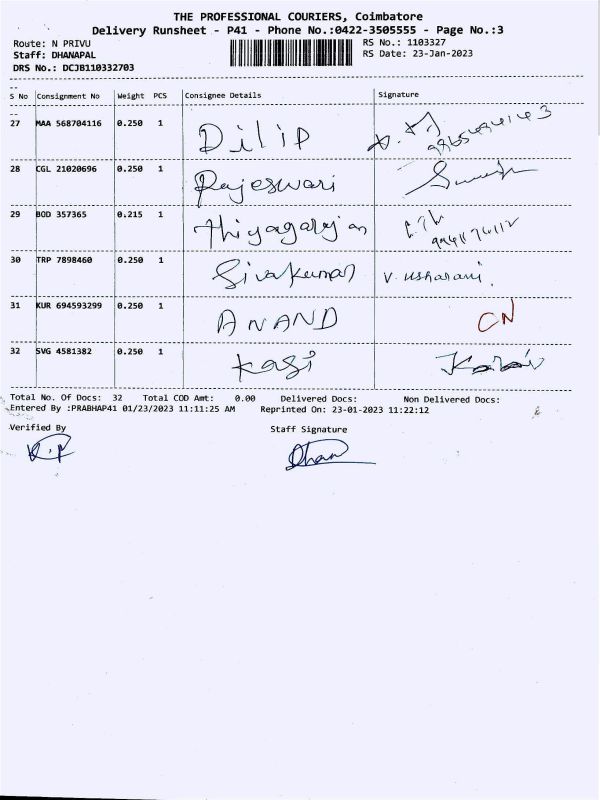 THE PROFESSIONAL COURIERS, Coimbatore
Delivery Runsheet - P41 - Phone No.:0422-3505555 - Page No.:3
Route: N PRIVU
RS No.: 1103327
Staff: DHANAPAL
RS Date: 23-Jan-2023
DRS No.: DCJB110332703
S No Consignment No Weight PCS Consignee Details Signature
27 MAA 568704116 0.250 1 Dilip
28 CGL 21020696 0.250 1 Rajeswari
29 BOD 357365 0.215 1 Thiyagarajan
30 TRP 7898460 0.250 1 Sivakumar V. Usharani.
31 KUR 694593299 0.250 1 ANAND CN
32 SVG 4581382 0.250 1 Kasi
Total No. Of Docs: 32 Total COD Amt: 0.00 Delivered Docs: Non Delivered Docs:
Entered By :PRABHAP41 01/23/2023 11:11:25 AM Reprinted On: 23-01-2023 11:22:12
Verified By Staff Signature
Dhan